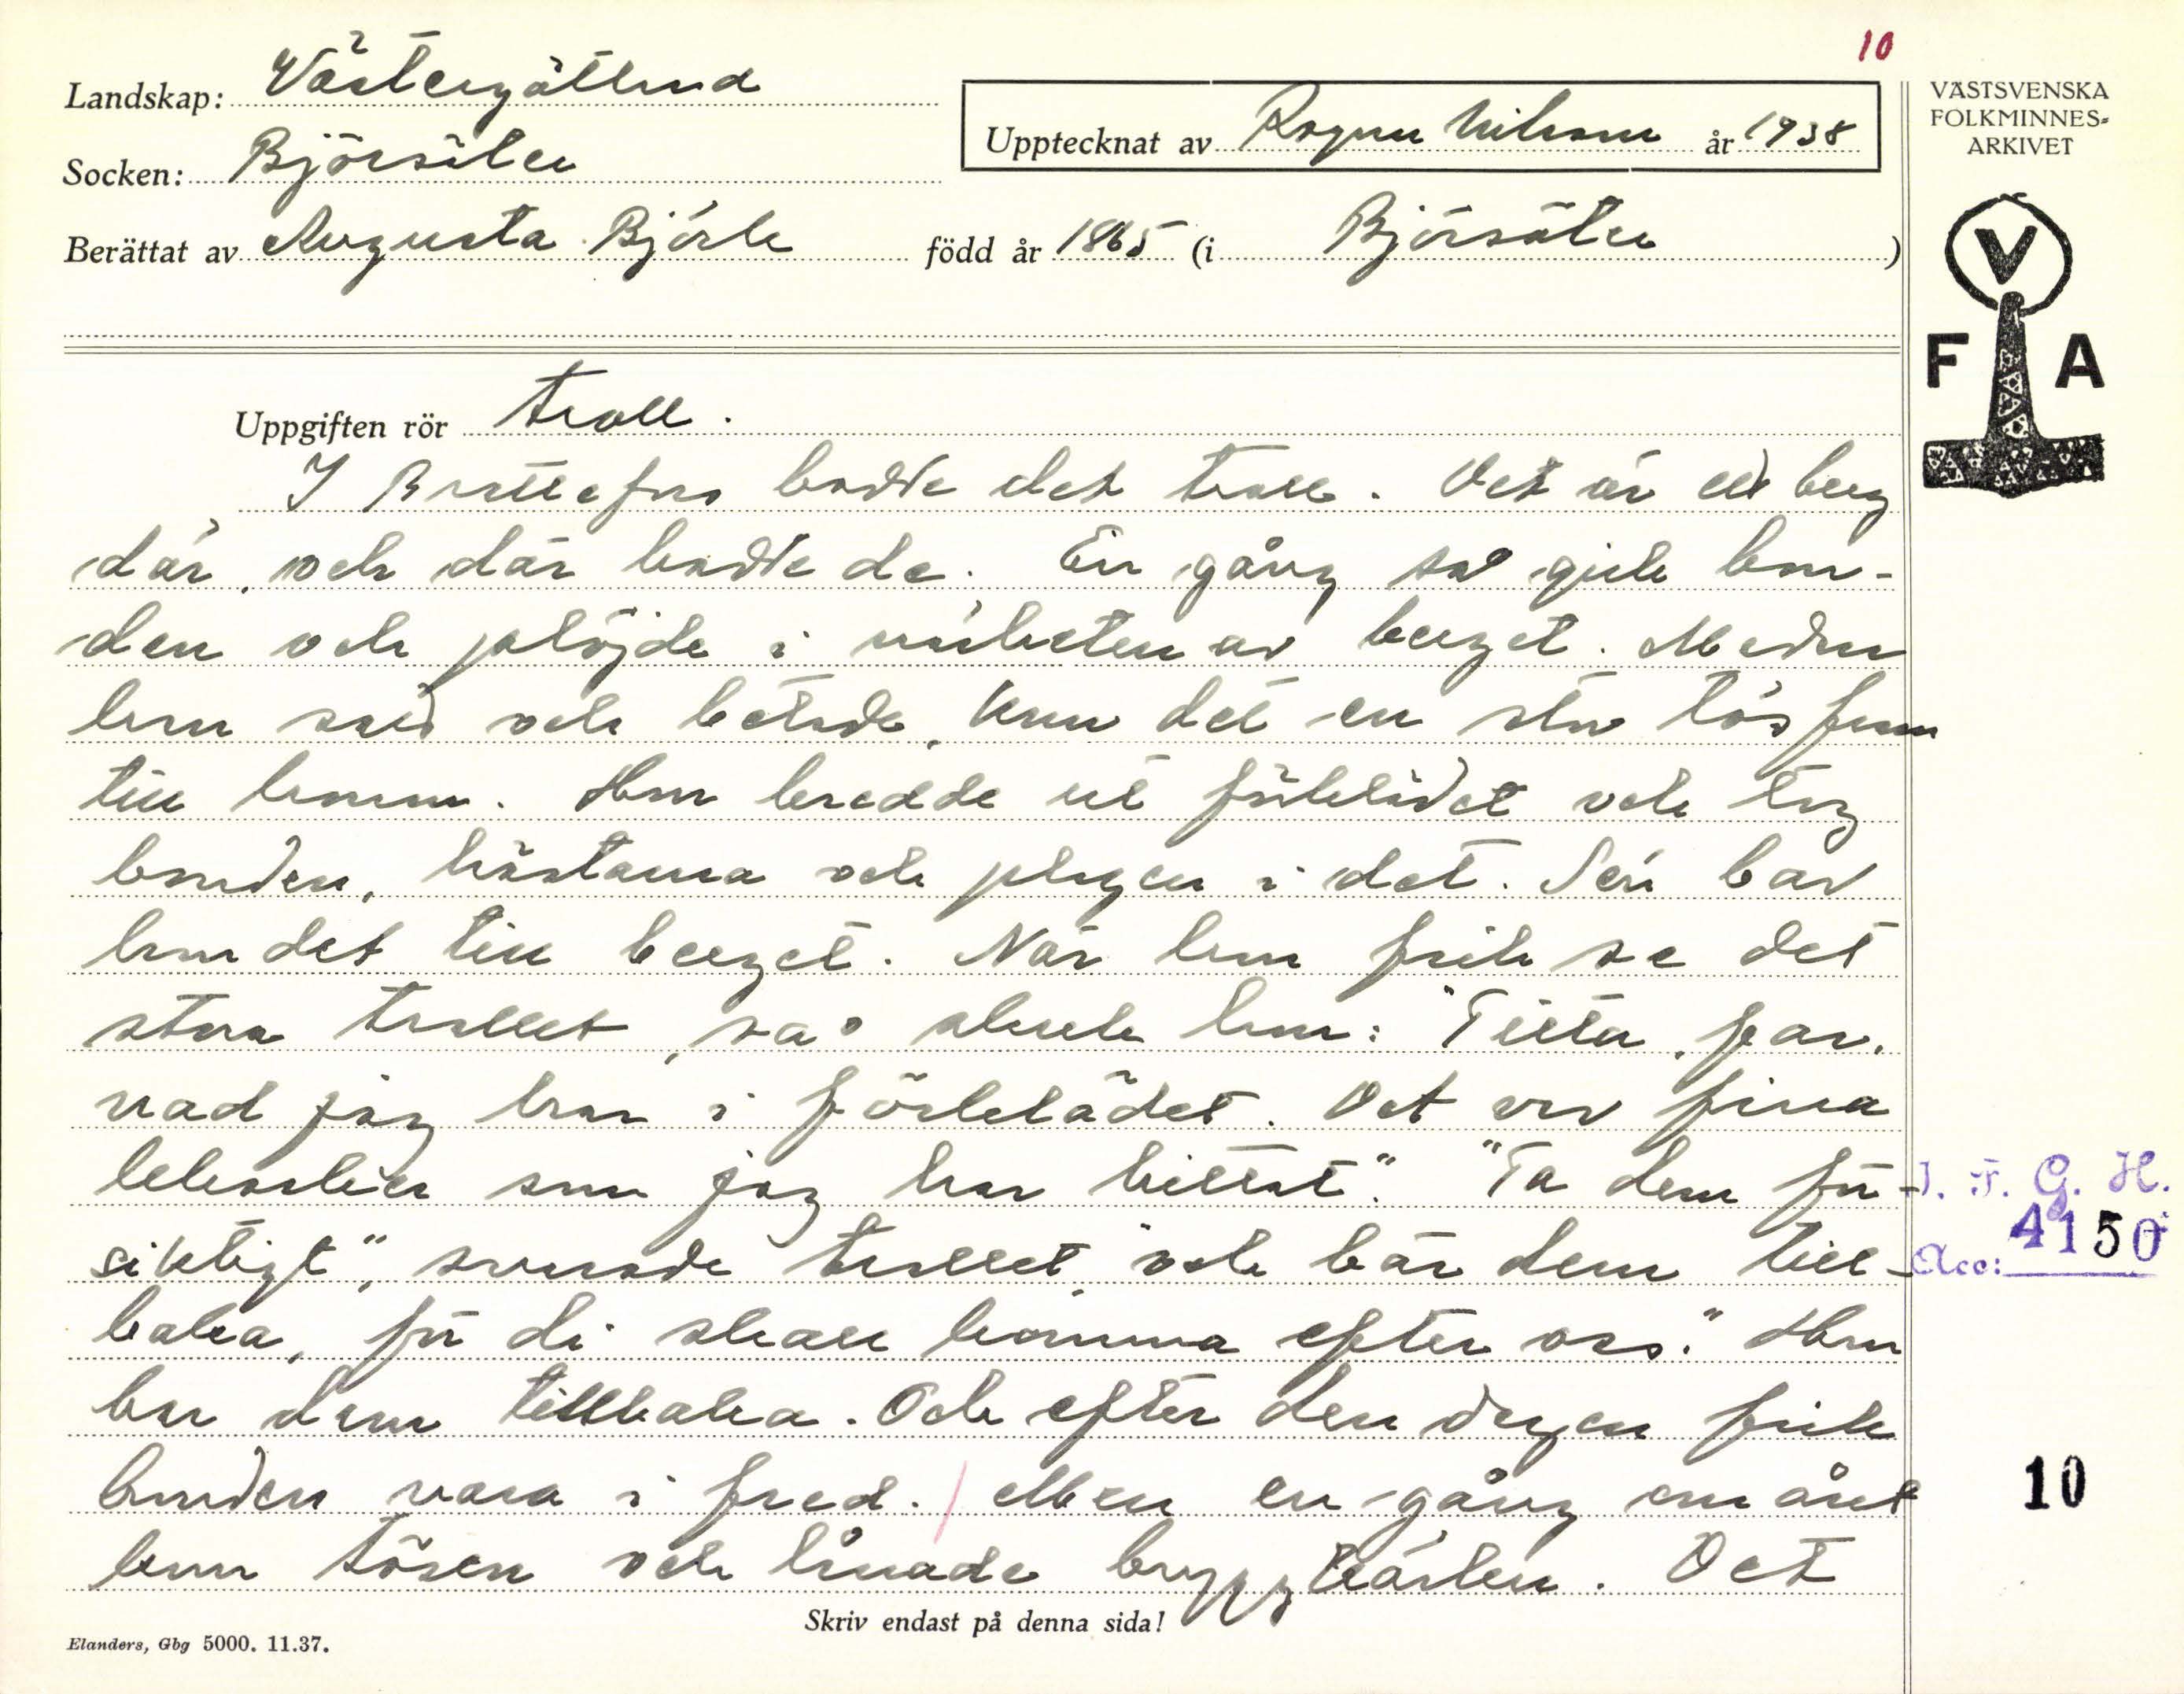 10
Landskap: Västergötland
Socken: Björsäter
Upptecknat av Ragnar Nilsson år 1938
Berättat av Augusta Björk född år 1865 (i Björsäter)
VÄSTSVENSKA
FOLKMINNES-
ARKIVET
V
F A
Uppgiften rör troll.
I bodde det troll. Det är ett berg
där, och där bodde de. En gång så gick bon-
den och plöjde i närheten av berget. Medan
han stod och betade, kom det en stor tös fram
till honom. Hon bredde ut förklädet och tog
bonden, hästarna och plogen i det. Sen bar
hon det till berget. När hon fick se det
stora trollet, sa' skrek hon: "Titta, far,
vad jag har i förklädet. Det var fina
leksaker som jag har hittat". "Ta dem för-
siktigt", svarade trollet, "och bär dem till-
baka, för di skall komma efter oss." Hon
bar dem tillbaka. Och efter den dagen fick
bonden vara i fred. / Men en gång om året
kom tösen och lånade bryggkärlen. Det
J. F. G. H.
Acc: 4150
10
Skriv endast på denna sida!
Elanders, Gbg 5000. 11.37.